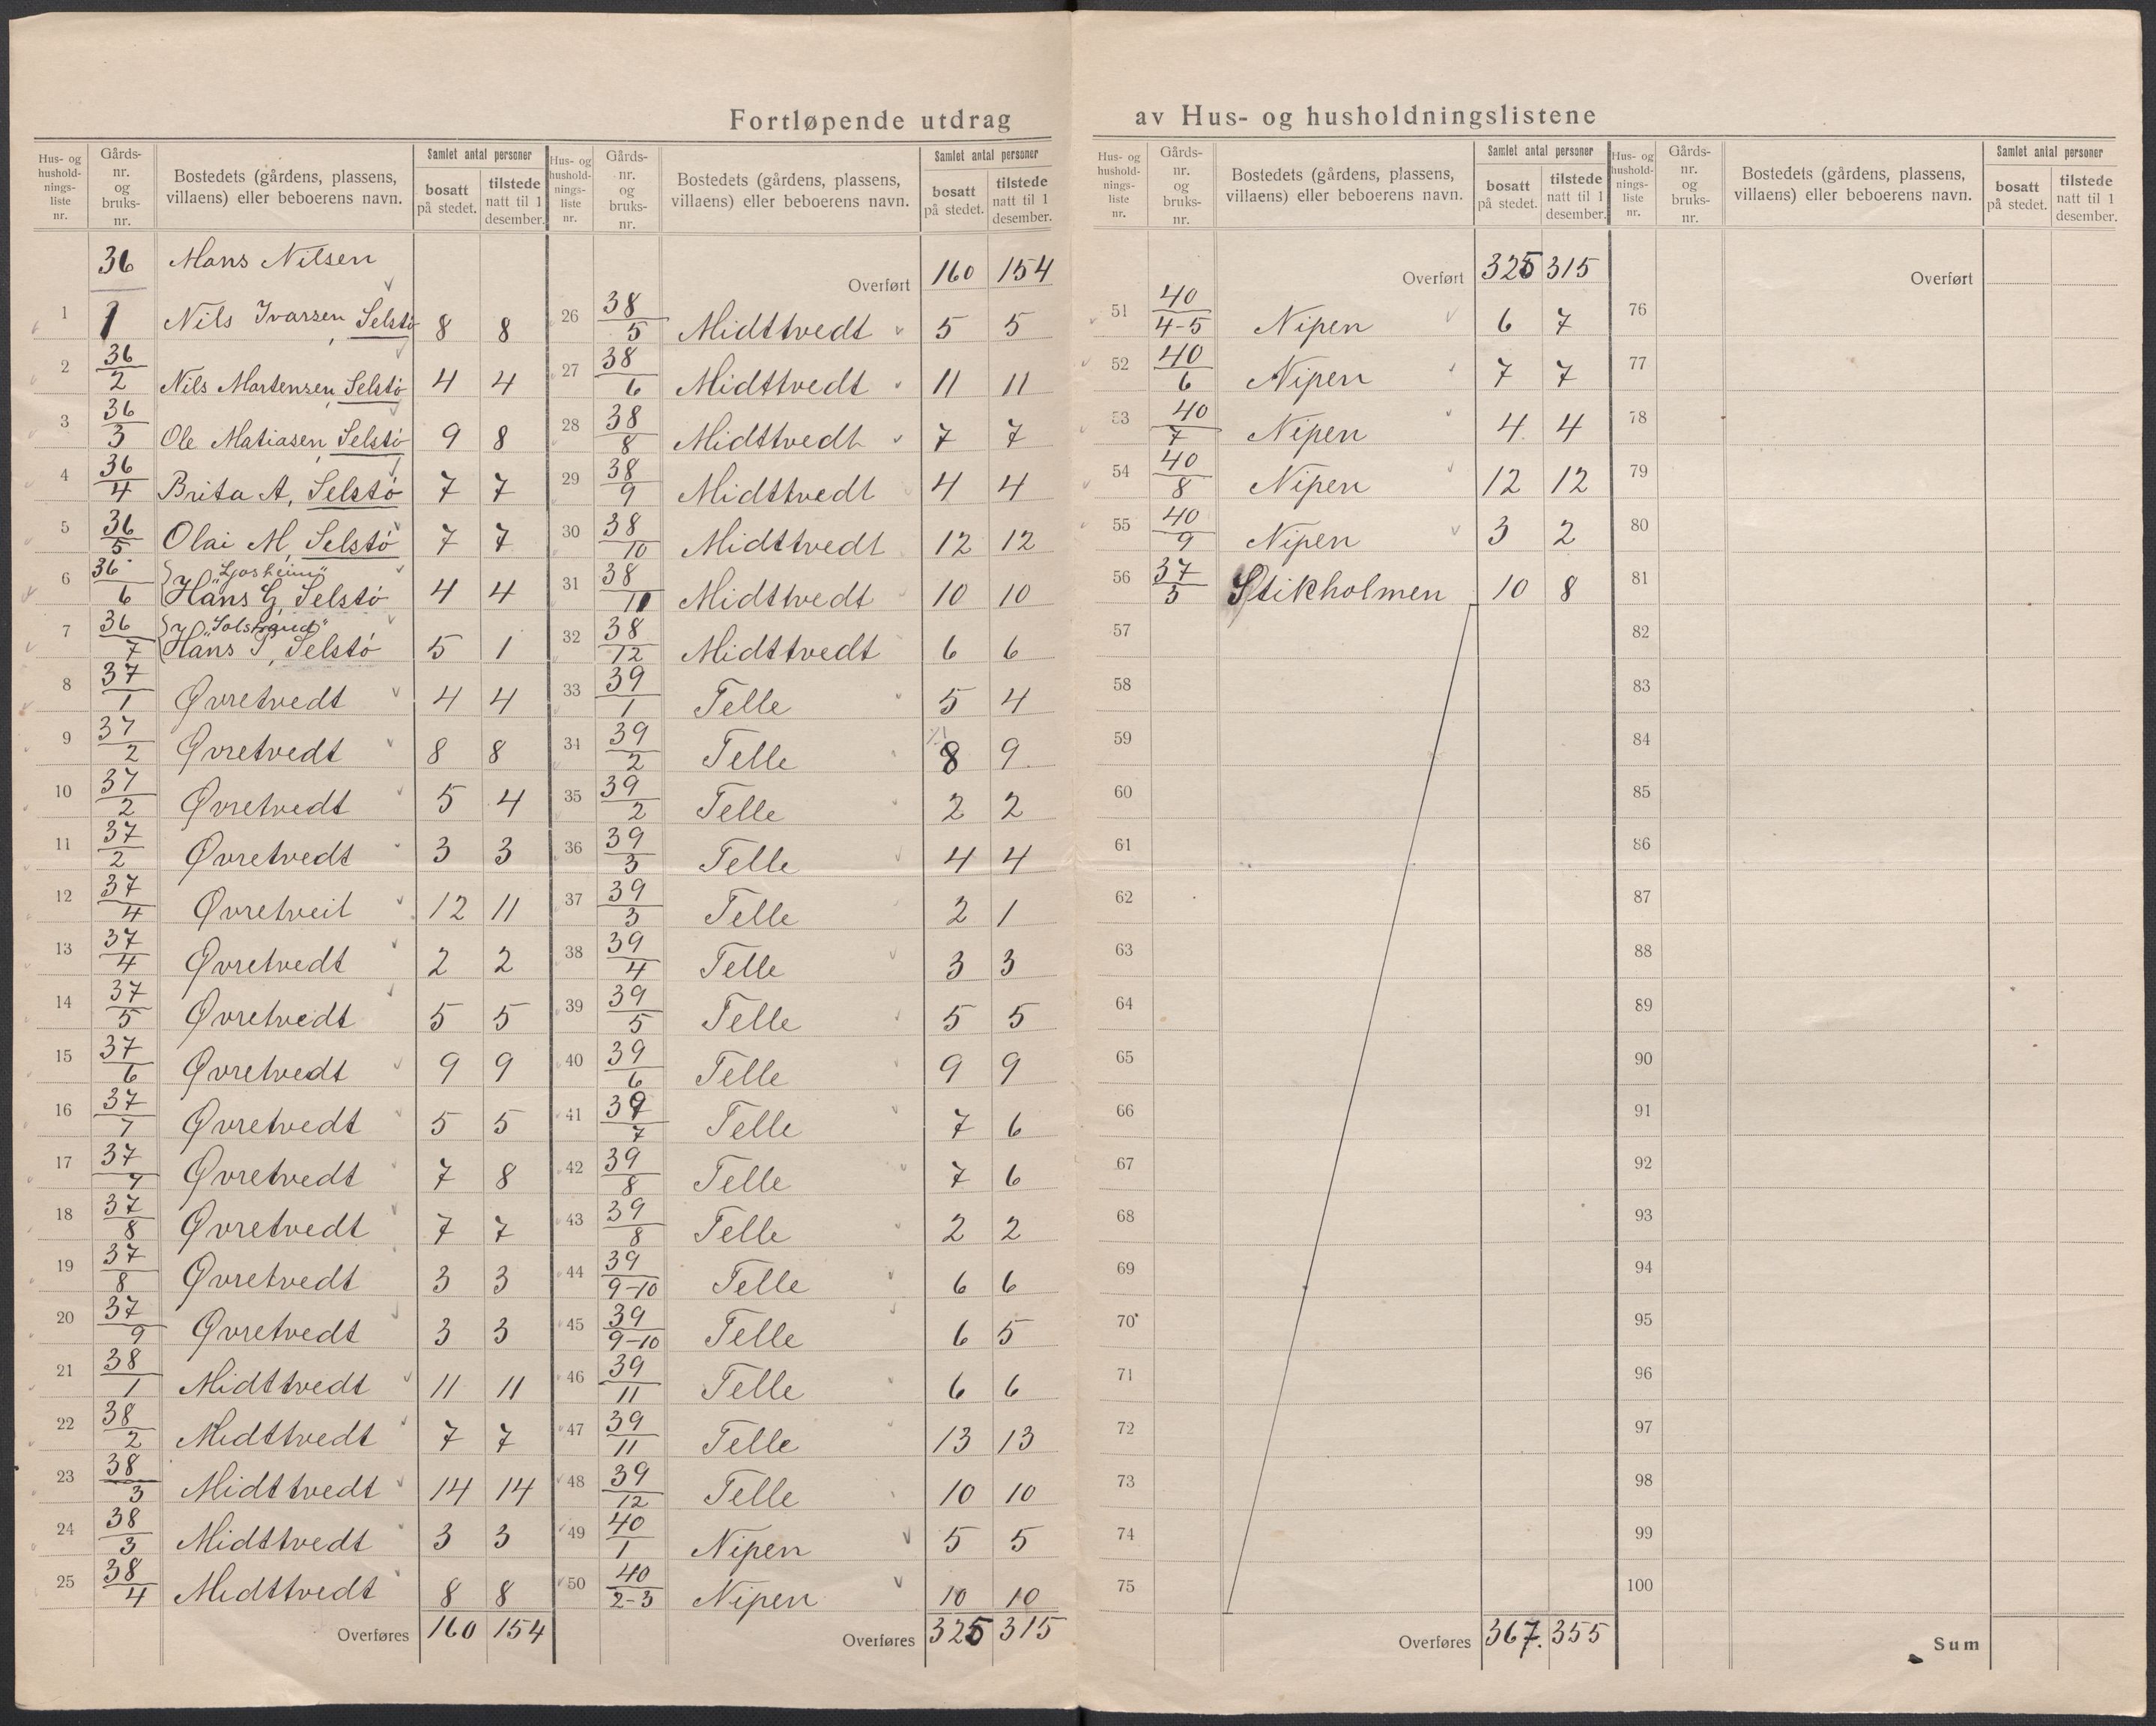 Fortløpende utdrag av Hus- og husholdningslistene
Hus- og husholdningsliste nr. | Gårds-nr. og bruks-nr. | Bostedets (gårdens, plassens, villaens) eller beboerens navn. | Samlet antal personer | bosatt på stedet. | tilstede natt til 1 desember.
36 Mons Nilsen
1 1 Nils Ivarsen, Selstø 8 8
2 36/2 Nils Mortensen, Selstø 4 4
3 36/3 Ole Matiasen, Selstø 9 8
4 36/4 Brita A, Selstø 7 7
5 36/5 Olai M, Selstø 7 7
6 36/6 "Ljosheim" Hans G, Selstø 4 4
7 36/7 "Solstrand" Hans J, Selstø 5 1
8 37/1 Øvretvedt 4 4
9 37/2 Øvretvedt 8 8
10 37/2 Øvretvedt 5 4
11 37/2 Øvretvedt 3 3
12 37/4 Øvretveit 12 11
13 37/4 Øvretvedt 2 2
14 37/5 Øvretvedt 5 5
15 37/6 Øvretvedt 9 9
16 37/7 Øvretvedt 5 5
17 37/7 Øvretvedt 7 8
18 37/8 Øvretvedt 7 7
19 37/8 Øvretvedt 3 3
20 37/9 Øvretvedt 3 3
21 38/1 Midttvedt 11 11
22 38/2 Midttvedt 7 7
23 38/3 Midttvedt 14 14
24 38/3 Midttvedt 3 3
25 38/4 Midttvedt 8 8
Overføres 160 154
Hus- og husholdningsliste nr. | Gårds-nr. og bruks-nr. | Bostedets (gårdens, plassens, villaens) eller beboerens navn. | Samlet antal personer | bosatt på stedet. | tilstede natt til 1 desember.
Overført 160 154
26 38/5 Midttvedt 5 5
27 38/6 Midttvedt 11 11
28 38/8 Midttvedt 7 7
29 38/9 Midttvedt 4 4
30 38/10 Midttvedt 12 12
31 38/11 Midttvedt 10 10
32 38/12 Midttvedt 6 6
33 39/1 Telle 5 4
34 39/2 Telle 8 9
35 39/2 Telle 2 2
36 39/3 Telle 4 4
37 39/3 Telle 2 1
38 39/4 Telle 3 3
39 39/5 Telle 5 5
40 39/6 Telle 9 9
41 39/7 Telle 7 6
42 39/8 Telle 7 6
43 39/8 Telle 2 2
44 39/9-10 Telle 6 6
45 39/9-10 Telle 6 5
46 39/11 Telle 6 6
47 39/11 Telle 13 13
48 39/12 Telle 10 10
49 40/1 Nipen 5 5
50 40/2-3 Nipen 10 10
Overføres 325 315
Hus- og husholdningsliste nr. | Gårds-nr. og bruks-nr. | Bostedets (gårdens, plassens, villaens) eller beboerens navn. | Samlet antal personer | bosatt på stedet. | tilstede natt til 1 desember.
Overført 325 315
51 40/4-5 Nipen 6 7
52 40/6 Nipen 7 7
53 40/7 Nipen 4 4
54 40/8 Nipen 12 12
55 40/9 Nipen 3 2
56 37/3 Stikholmen 10 8
57
58
59
60
61
62
63
64
65
66
67
68
69
70
71
72
73
74
75
Overføres 367. 355
Hus- og husholdningsliste nr. | Gårds-nr. og bruks-nr. | Bostedets (gårdens, plassens, villaens) eller beboerens navn. | Samlet antal personer | bosatt på stedet. | tilstede natt til 1 desember.
Overført
76
77
78
79
80
81
82
83
84
85
86
87
88
89
90
91
92
93
94
95
96
97
98
99
100
Sum